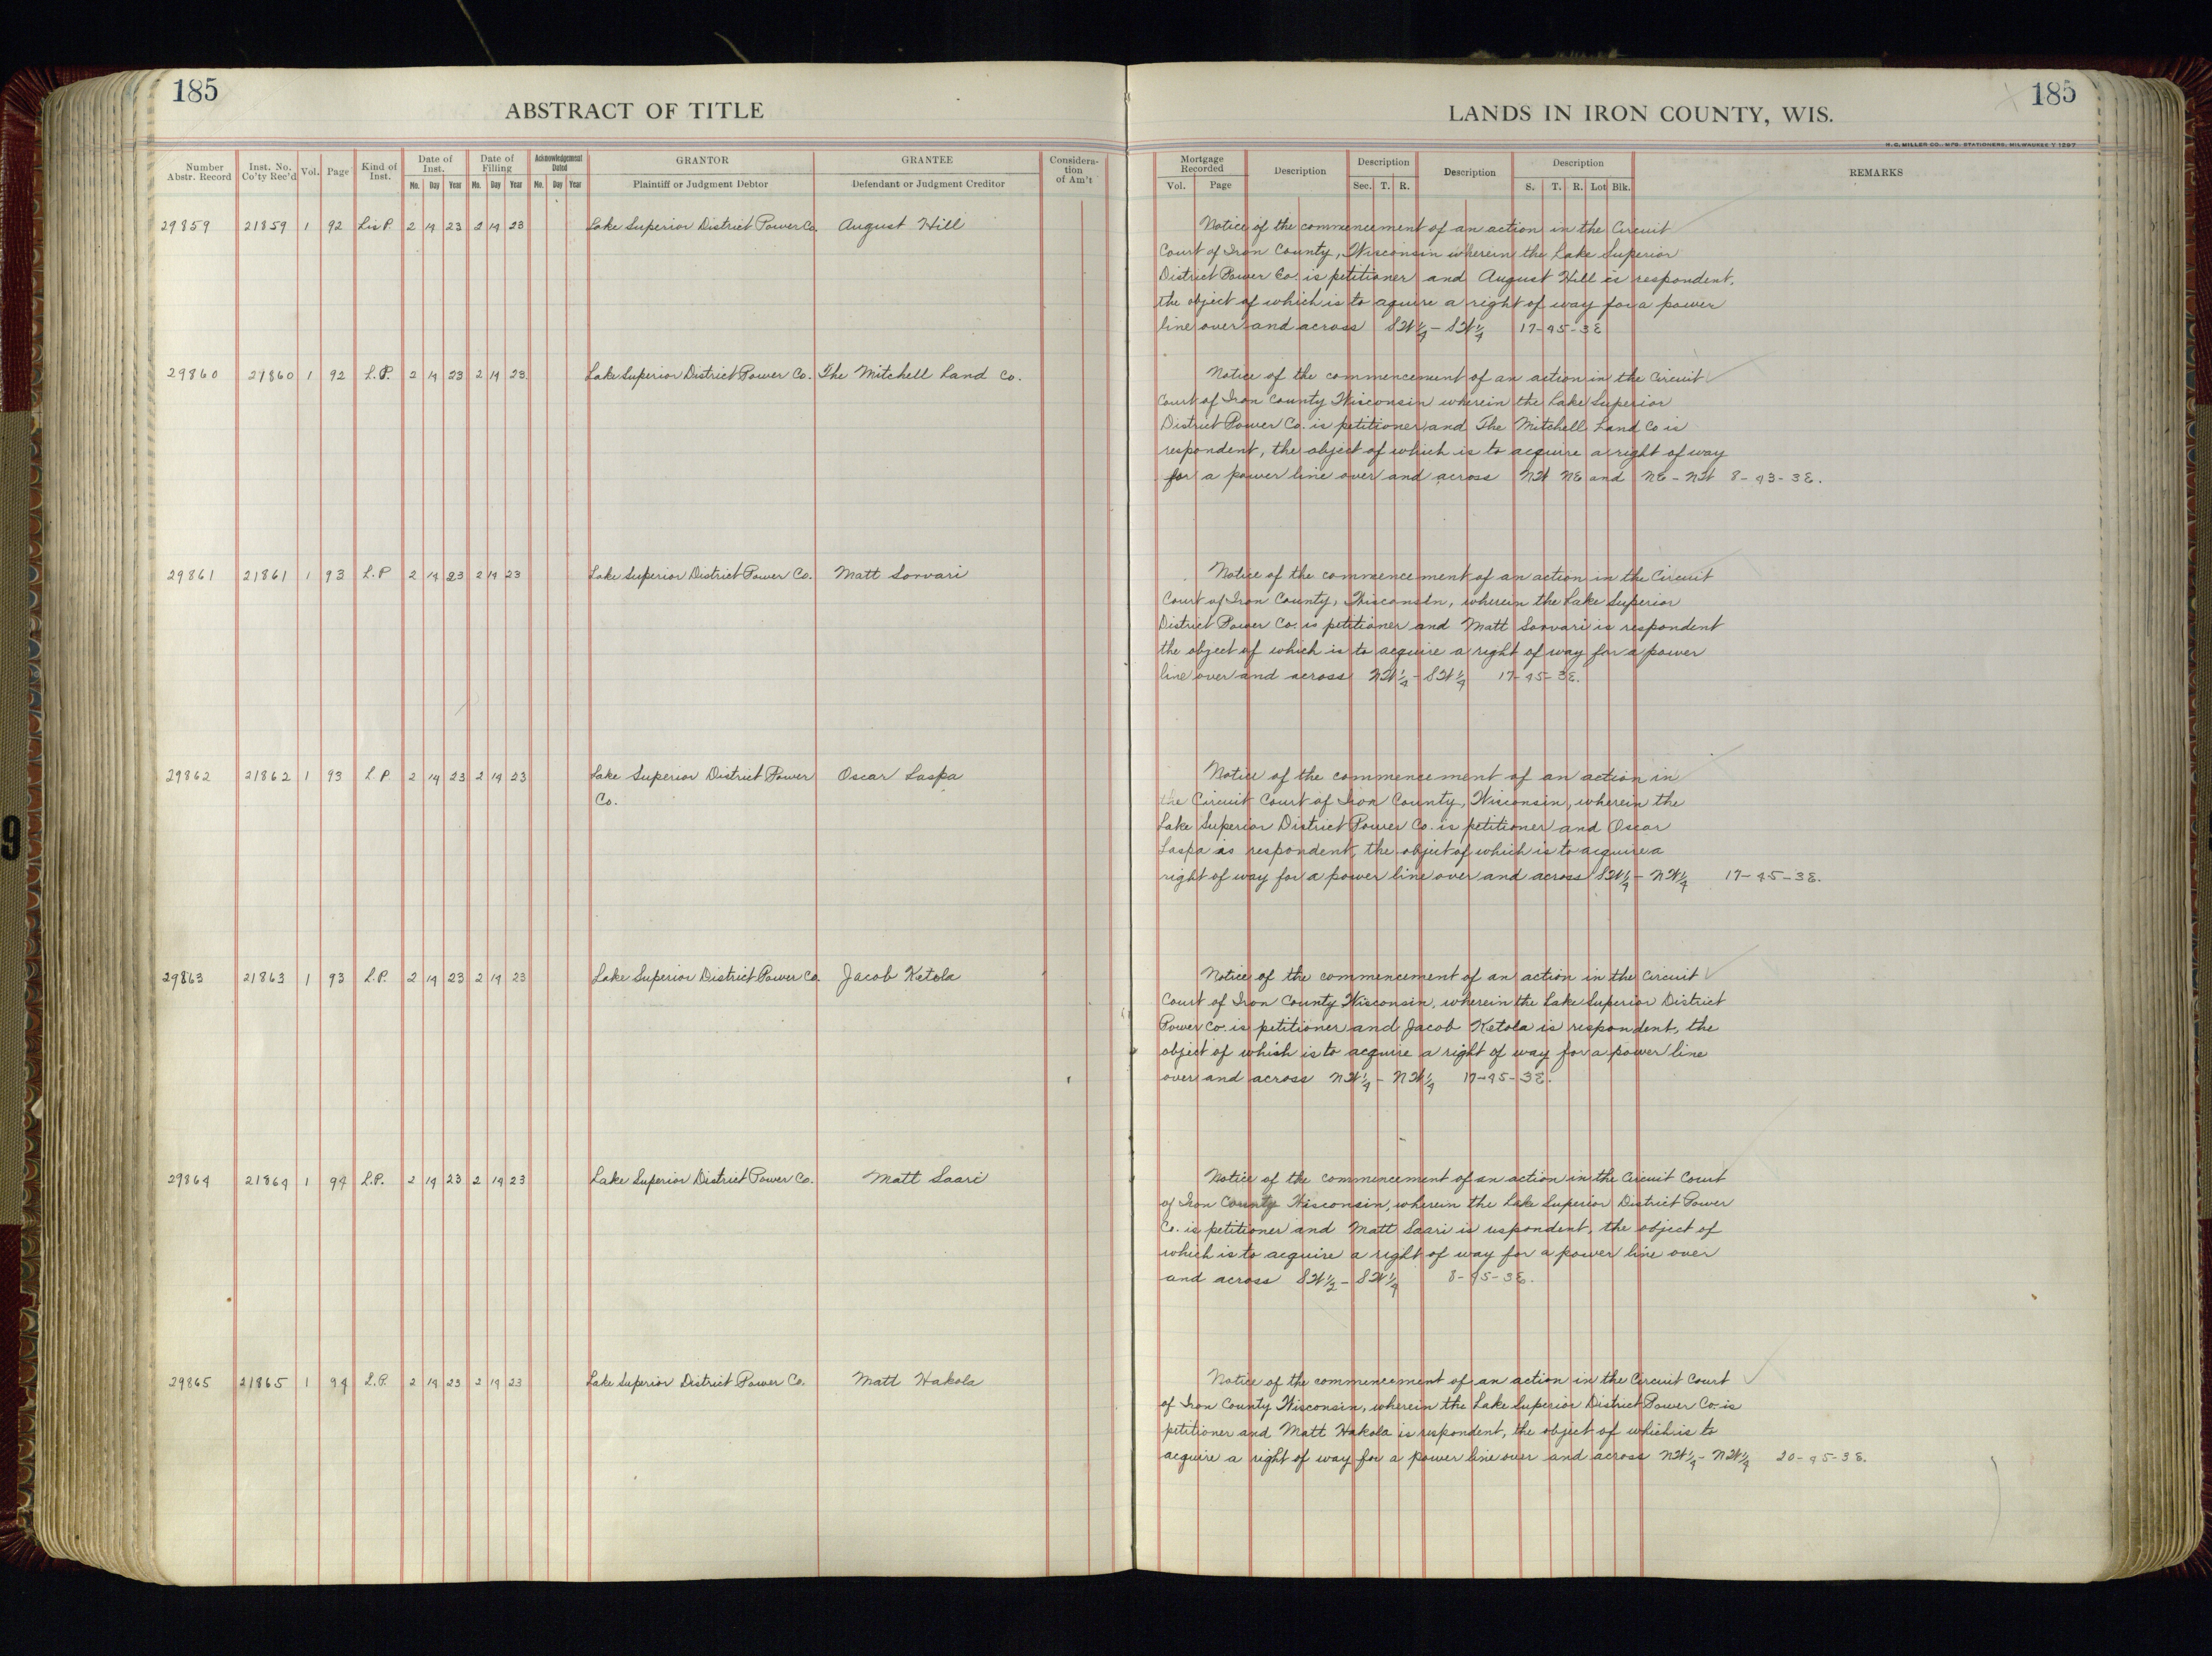 185
ABSTRACT OF TITLE
Number Abstr. Record
Inst. No. Co'ty Rec'd
Vol.
Page
Kind of Inst.
Date of Inst.
Mo. Day Year
Date of Filling
Mo. Day Year
Acknowledgement Dated
Mo. Day Year
GRANTOR
Plaintiff or Judgment Debtor
GRANTEE
Defendant or Judgment Creditor
Considera-
tion
of Am't
29859 21859 1 92 Lis P. 2 14 23 2 14 23 Lake Superior District Power Co. August Hill
29860 21860 1 92 L.P. 2 14 23 2 14 23 Lake Superior District Power Co. The Mitchell Land Co.
29861 21861 1 93 L.P 2 14 23 2 14 23 Lake Superior District Power Co. Matt Sorvari
29862 21862 1 93 L P 2 14 23 2 14 23 Lake Superior District Power Oscar Saspa
Co.
29863 21863 1 93 L.P. 2 14 23 2 14 23 Lake Superior District Power Co. Jacob Ketola
29864 21864 1 94 L.P. 2 14 23 2 14 23 Lake Superior District Power Co. Matt Saari
29865 21865 1 94 L.P. 2 14 23 2 14 23 Lake Superior District Power Co. Matt Hakola
185
LANDS IN IRON COUNTY, WIS.
H. C. MILLER CO., MFG. STATIONERS, MILWAUKEE
Mortgage Recorded
Vol. Page
Description
Description
Sec. T. R.
Description
Description
S. T. R. Lot Blk.
REMARKS
Notice of the commencement of an action in the Circuit
Court of Iron County, Wisconsin wherein the Lake Superior
District Power Co. is petitioner and August Hill is respondent,
the object of which is to aquire a right of way for a power
line over and across SW¼ - SW¼ 17-45-3E
Notice of the commencement of an action in the Circuit
Court of Iron County Wisconsin wherein the Lake Superior
District Power Co. is petitioner and The Mitchell Land Co is
respondent, the object of which is to acquire a right of way
for a power line over and across NW NE and NE - NW 8-43-3E.
Notice of the commencement of an action in the Circuit
Court of Iron County, Wisconsin, wherein the Lake Superior
District Power Co. is petitioner and Matt Sorvari is respondent
the object of which is to acquire a right of way for a power
line over and across NW¼ - SW¼ 17-45-3E.
Notice of the commencement of an action in
the Circuit Court of Iron County, Wisconsin, wherein the
Lake Superior District Power Co. is petitioner and Oscar
Saspa is respondent, the object of which is to acquire a
right of way for a power line over and across SW¼ - NW¼ 17-45-3E.
Notice of the commencement of an action in the Circuit
Court of Iron County Wisconsin, wherein the Lake Superior District
Power Co. is petitioner and Jacob Ketola is respondent, the
object of which is to acquire a right of way for a power line
over and across NW¼ - NW¼ 17-45-3E.
Notice of the commencement of an action in the Circuit Court
of Iron County Wisconsin, wherein the Lake Superior District Power
Co. is petitioner and Matt Saari is uspondent, the object of
which is to acquire a right of way for a power line over
and across SW½ - SW¼ 8-45-3E.
Notice of the commencement of an action in the Circuit Court
of Iron County Wisconsin, wherein the Lake Superior District Power Co is
petitioner and Matt Hakola is respondent, the object of which is to
acquire a right of way for a power line over and across NW¼ - NW¼ 20-45-3E.
9